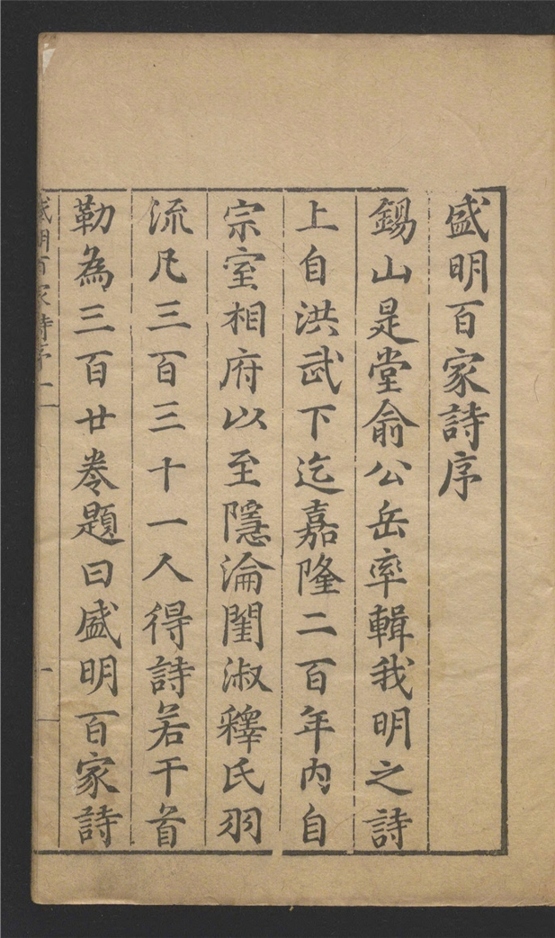 盛明百家詩序
錫山是堂俞公岳率輯我明之詩
上自洪武下迄嘉隆二百年內自
宗室相府以至隱淪閨淑釋氏羽
流凡三百三十一人得詩若干首
勒為三百廿卷題曰盛明百家詩
盛明百家詩序 一